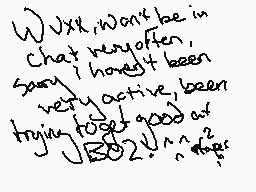 W vxx, won't be in
chat very often,
sorry i haven't been
very active, been
trying to get good at
BO2! ^^ ^